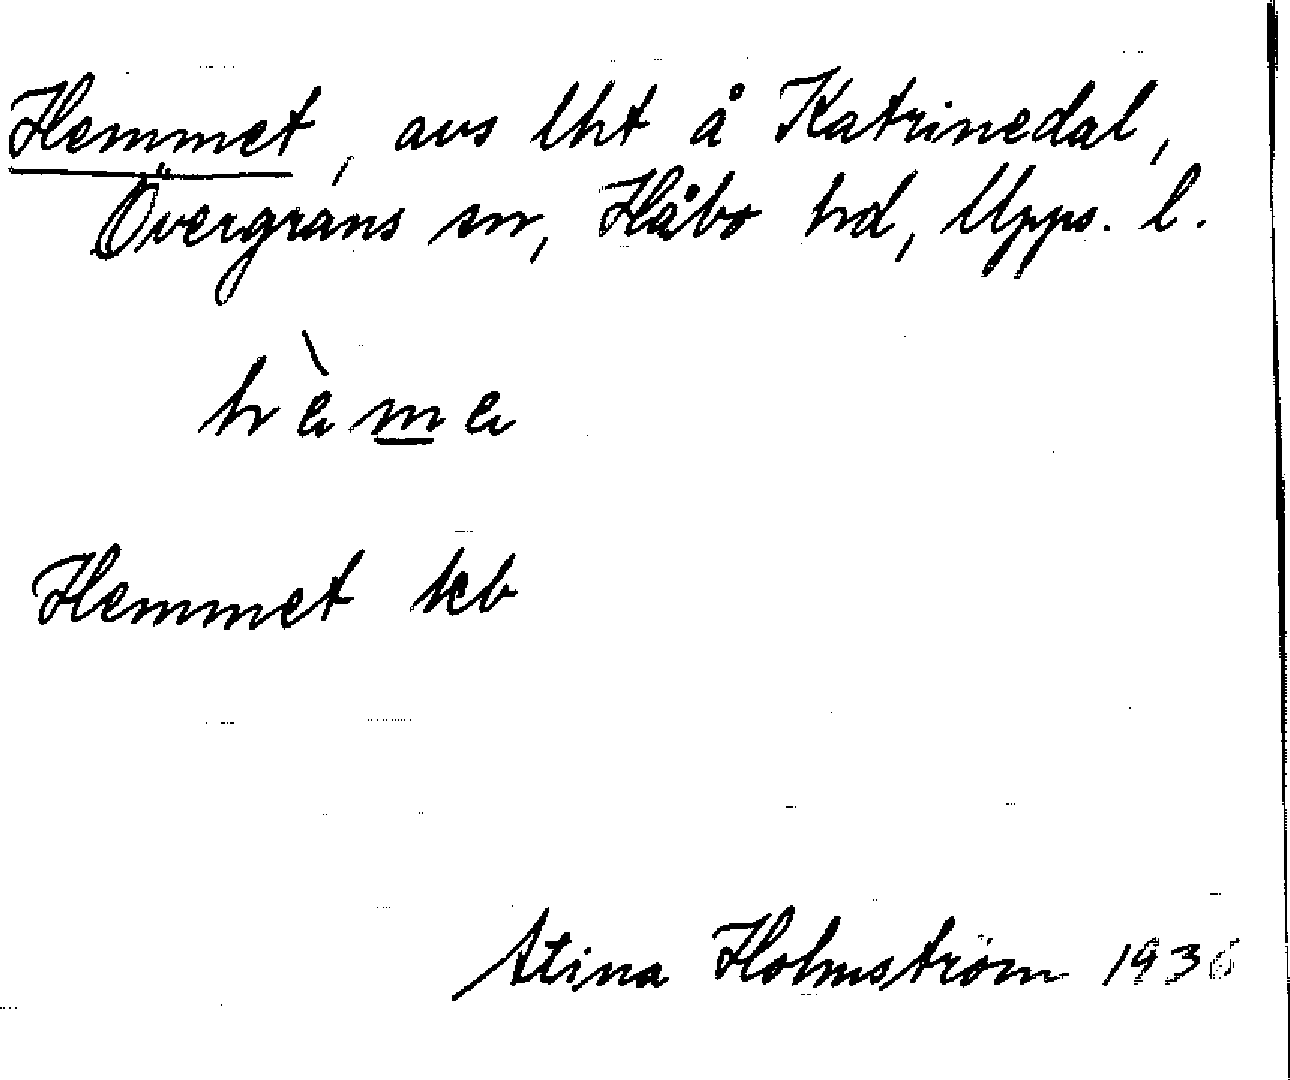 Hemmet, avs lht å Katrinedal,
Övergrans sn, Håbo hd, Upps. l.
hème
Hemmet kb
Stina Holmström 1936